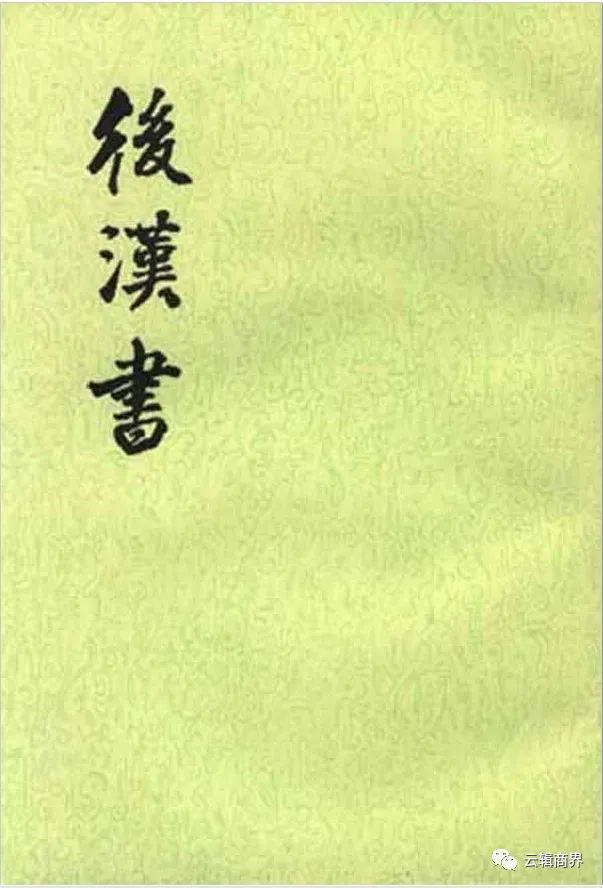 後漢書
云辑商界